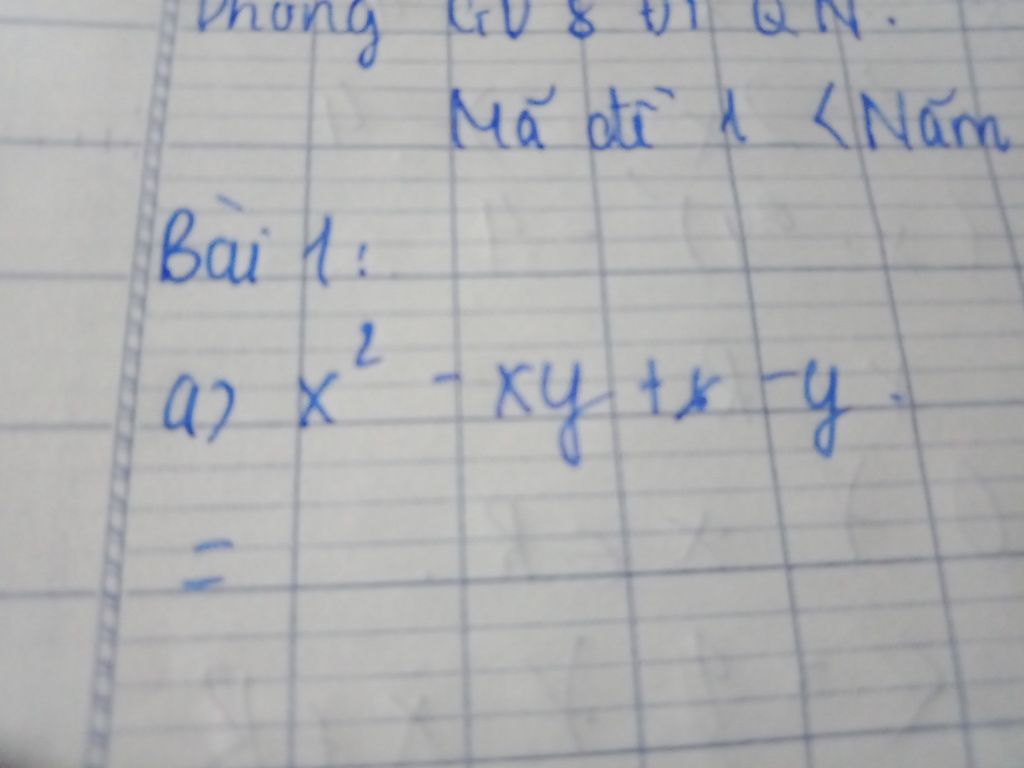 Phòng GD & ĐT QN.
Mã đề 1 (Năm
Bài 1:
a) x² - xy + x - y.
=